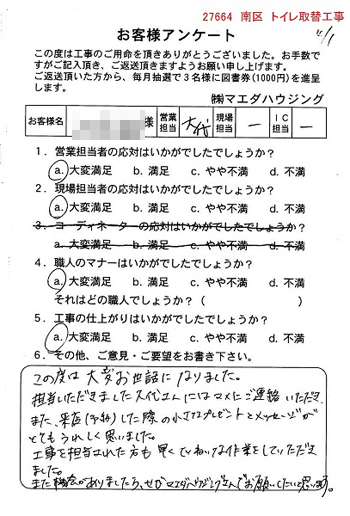 27664 南区 トイレ取替工事
11/1
お客様アンケート
この度は工事のご用命を頂きありがとうございました。お手数で
すがご記入頂き、ご返送頂きますようお願い申し上げます。
ご返送頂いた方から、毎月抽選で３名様に図書券(1000円)を進呈
します。
㈱マエダハウジング
お客様名 様 営業担当 大代 現場担当 ー ＩＣ担当 ー
１．営業担当者の応対はいかがでしたでしょうか？
a. 大変満足 b. 満足 c. やや不満 d. 不満
２．現場担当者の応対はいかがでしたでしょうか？
a. 大変満足 b. 満足 c. やや不満 d. 不満
３．コーディネーターの応対はいかがでしたでしょうか？
a. 大変満足 b. 満足 c. やや不満 d. 不満
４．職人のマナーはいかがでしたでしょうか？
a. 大変満足 b. 満足 c. やや不満 d. 不満
それはどの職人でしょうか？（ ）
５．工事の仕上がりはいかがでしたでしょうか？
a. 大変満足 b. 満足 c. やや不満 d. 不満
６．その他、ご意見・ご要望をお書き下さい。
この度は大変お世話になりました。
担当いただきました大代さんにはマメにご連絡いただき、
また、来店(予約)した際の小さなプレゼントとメッセージが
とてもうれしく思いました。
工事を担当された方も早くていねいな作業をしていただき
ました。
また機会がありましたら、ぜひマエダハウジングさんでお願いしたいと思います。